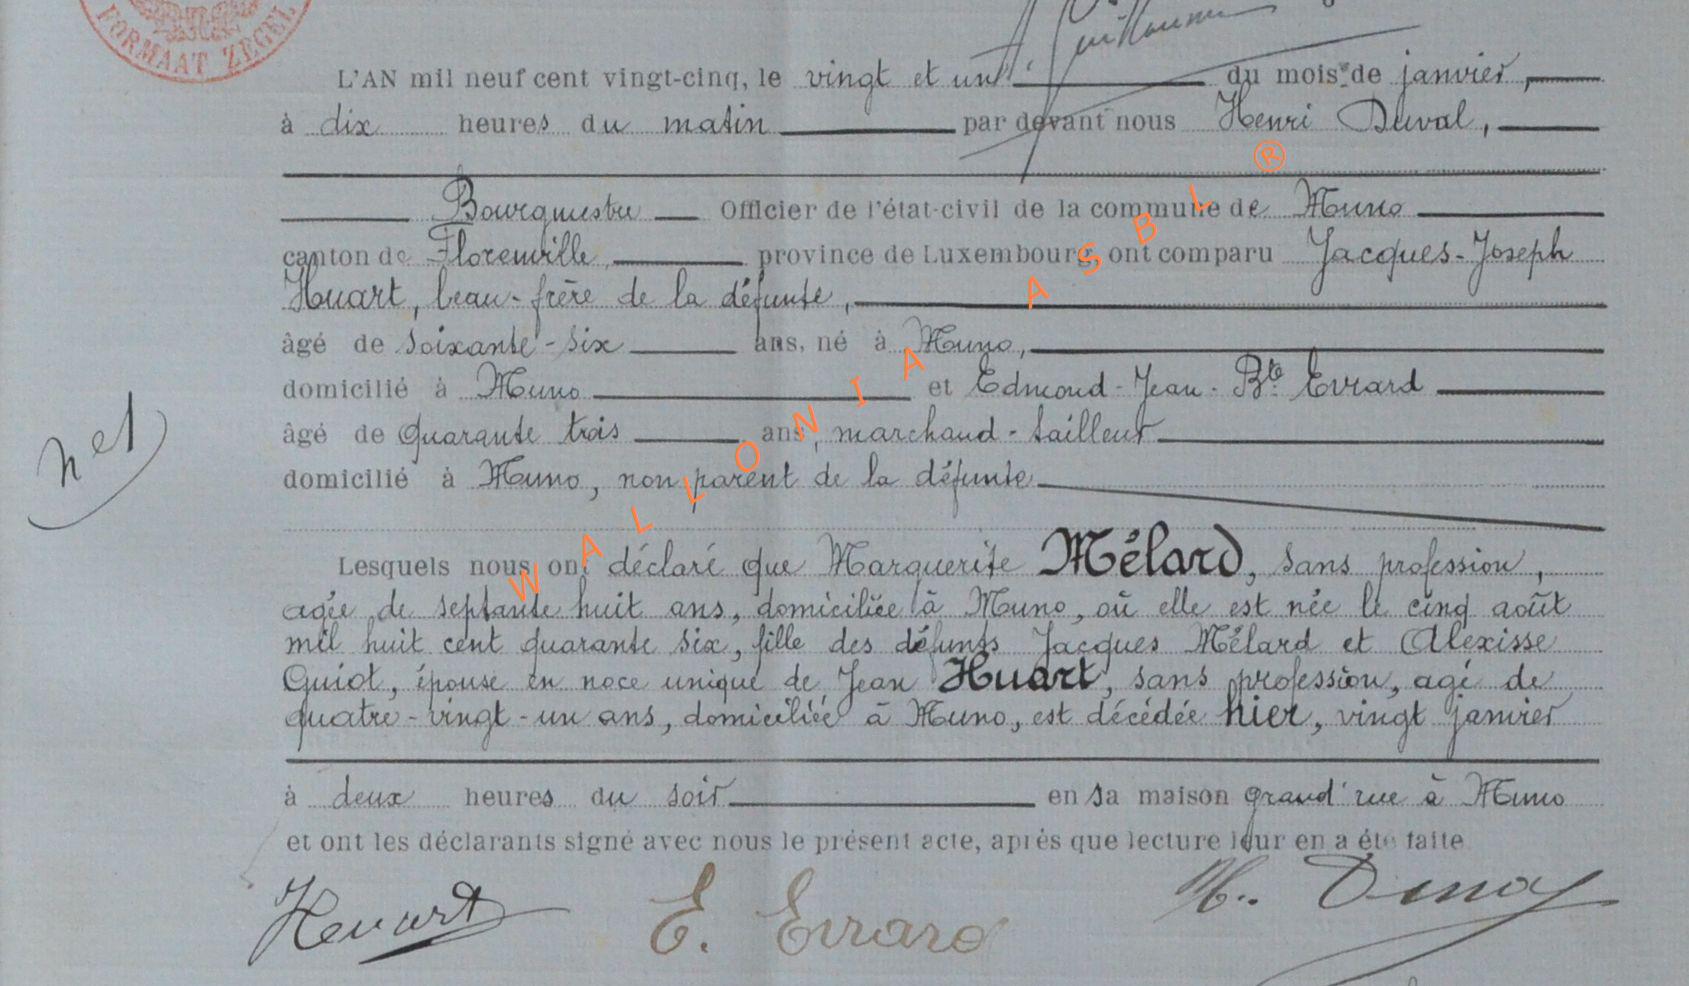 FORMAAT ZEGEL
Guillaume
L'AN mil neuf cent vingt-cinq, le vingt et un du mois de janvier,
à dix heures du matin par devant nous Henri Duval,
Bourgmestre Officier de l'état-civil de la commune de Muno
canton de Florenville province de Luxembourg, ont comparu Jacques-Joseph
Huart, beau-frère de la défunte,
âgé de soixante-six ans, né à Muno,
domicilié à Muno et Edmond-Jean-Bte Evrard
âgé de quarante trois ans, marchand-tailleur
domicilié à Muno, non parent de la défunte
n° 1
Lesquels nous ont déclaré que Marguerite Mélard, sans profession,
agée de septante huit ans, domiciliée à Muno, où elle est née le cinq août
mil huit cent quarante six, fille des défunts Jacques Mélard et Alexisse
Guiot, épouse en noce unique de Jean Huart, sans profession, agé de
quatre-vingt-un ans, domiciliée à Muno, est décédée hier, vingt janvier
à deux heures du soir en sa maison grand'rue à Muno
et ont les déclarants signé avec nous le présent acte, après que lecture leur en a été faite
Heuart E. Evrard H. Duval
WALLONIA ASBL ®